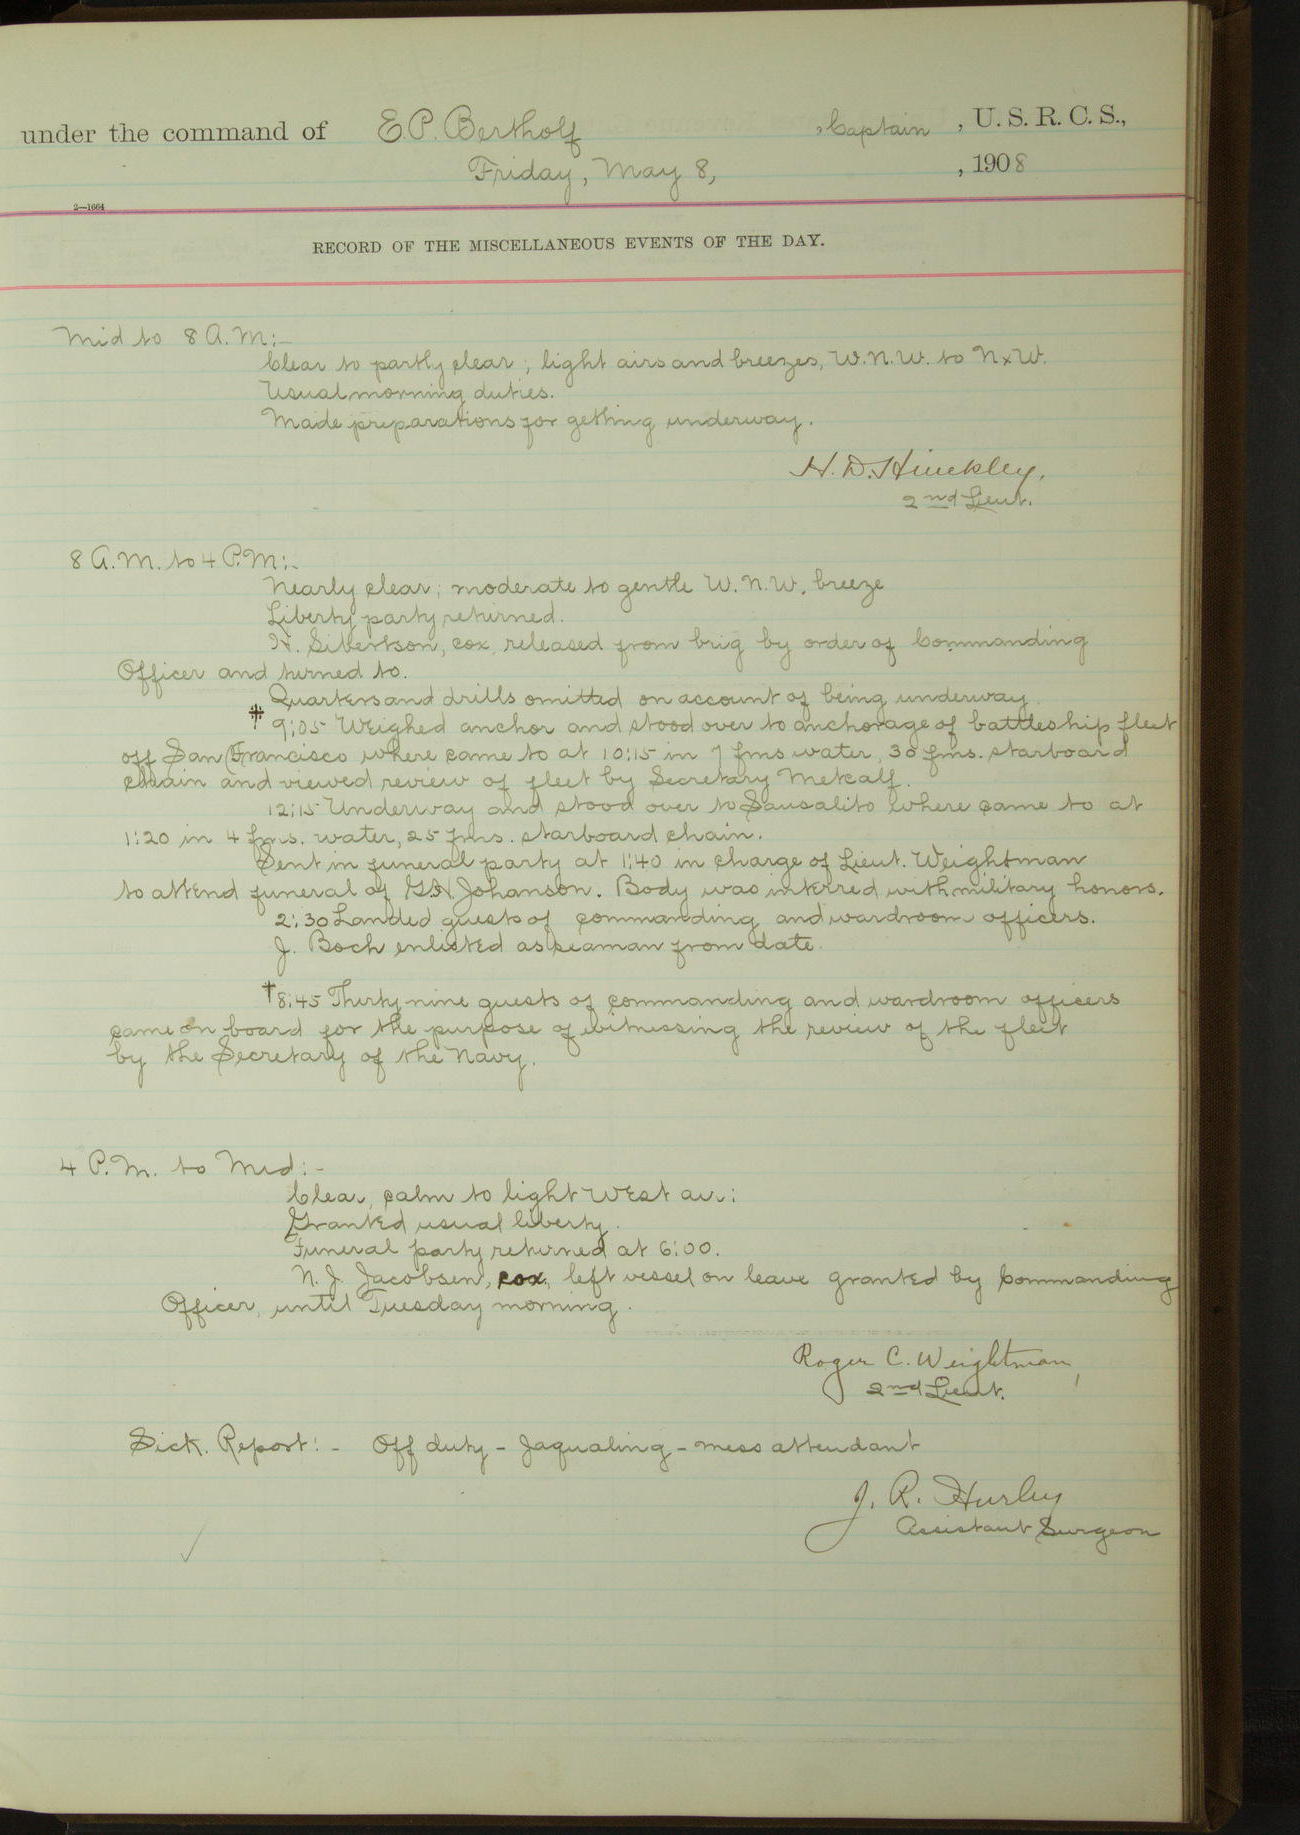 under the command of E.P. Bertholf, Captain, U. S. R. C. S.,
Friday, May 8, , 1908
2—1664
RECORD OF THE MISCELLANEOUS EVENTS OF THE DAY.
Mid to 8 A.M:-
Clear to partly clear; light airs and breezes, W.N.W. to NxW.
Usual morning duties.
Made preparations for getting underway.
H. D. Hinckley,
2nd Lieut.
8 A.M. to 4 P.M:-
Nearly clear; moderate to gentle W.N.W. breeze
Liberty party returned.
N. Sivertson, cox, released from brig by order of Commanding
Officer and turned to.
Quarters and drills omitted on account of being underway.
‡ 9:05 Weighed anchor and stood over to anchorage of battleship fleet
off San Francisco where came to at 10:15 in 7 fms water, 30 fms. starboard
chain and viewed review of fleet by Secretary Metcalf.
12:15 Underway and stood over to Sausalito where came to at
1:20 in 4 fms. water, 25 fms. starboard chain.
Sent in funeral party at 1:40 in charge of Lieut. Weightman
to attend funeral of G.A. Johanson. Body was interred with military honors.
2:30 Landed guests of commanding and wardroom officers.
J. Boch enlisted as seaman from date.
†8:45 Thirty nine guests of commanding and wardroom officers
came on board for the purpose of witnessing the review of the fleet
by the Secretary of the Navy.
4 P.M. to Mid:-
Clear, calm to light West air:
Granted usual liberty.
Funeral party returned at 6:00.
N. J. Jacobsen, cox, left vessel on leave granted by Commanding
Officer, until Tuesday morning.
Roger C. Weightman,
2nd Lieut.
Sick Report:- Off duty - Jaqualing - mess attendant
J. R. Hurley
Assistant Surgeon